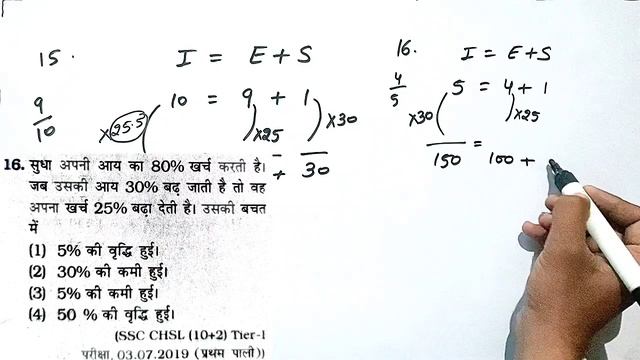 15.
I = E + S
9/10
10 = 9 + 1
×25.5
×25
×30
-
+ 30
16. सुधा अपनी आय का 80% खर्च करती है।
जब उसकी आय 30% बढ़ जाती है तो वह
अपना खर्च 25% बढ़ा देती है। उसकी बचत
में
(1) 5% की वृद्धि हुई।
(2) 30% की कमी हुई।
(3) 5% की कमी हुई।
(4) 50 % की वृद्धि हुई।
(SSC CHSL (10+2) Tier-I
परीक्षा, 03.07.2019 (प्रथम पाली))
16.
I = E + S
4/5
5 = 4 + 1
×30
×25
150 = 100 +